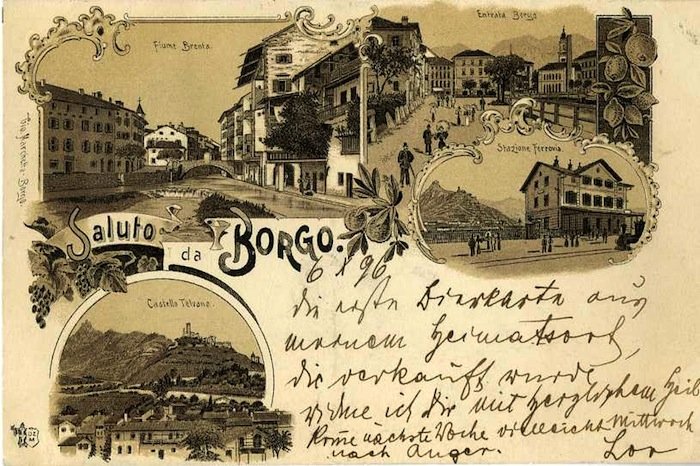 Fiume Brenta.
Entrata Borgo
Stazione Ferrovia.
Saluto da BORGO.
Castello Telvana.
6 X 96
die erste Bierkarte aus
meinem Heimatsort,
die verkauft wurde
widme ich Dir mit herzlichem Heil
Komme nächste Woche vielleicht Mittwoch
nach Anger.